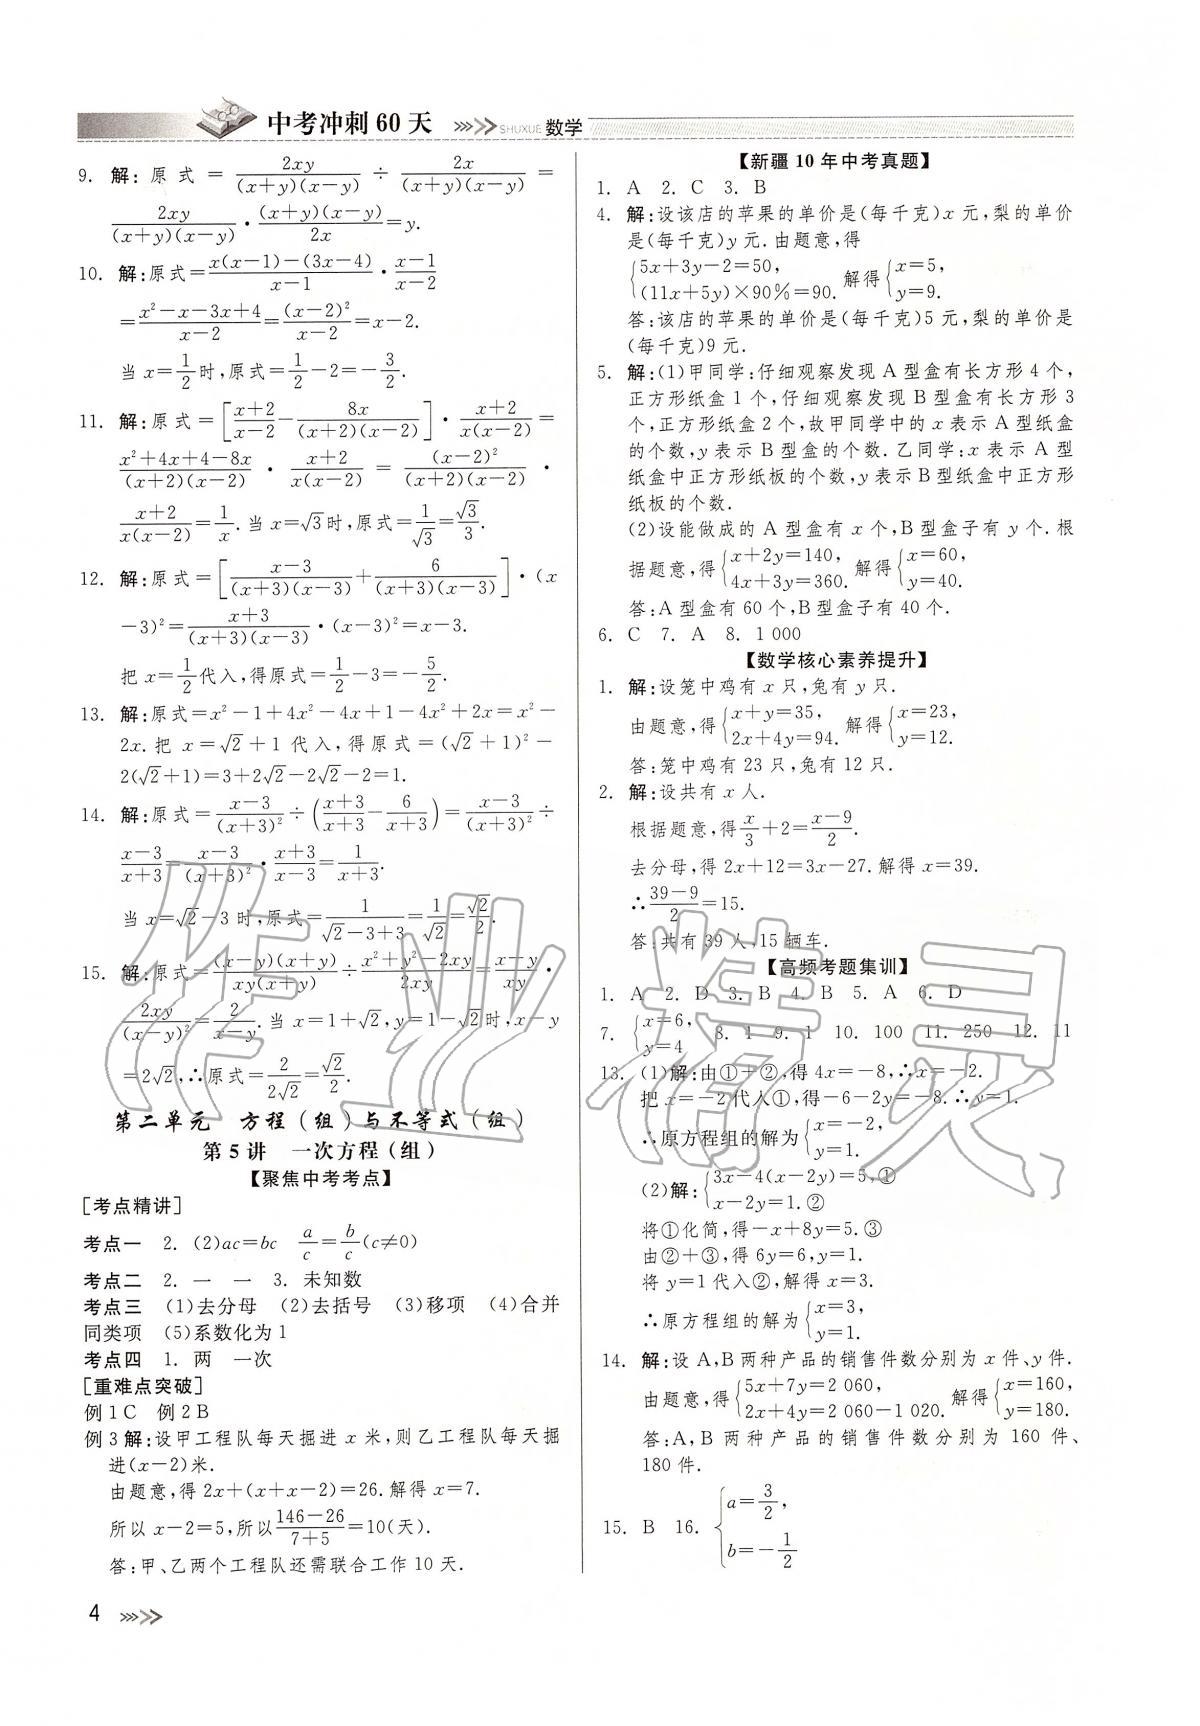 中考冲刺60天 SHUXUE 数学
9. 解:原式=\frac{2xy}{(x+y)(x-y)}÷\frac{2x}{(x+y)(x-y)}=
\frac{2xy}{(x+y)(x-y)}·\frac{(x+y)(x-y)}{2x}=y.
10. 解:原式=\frac{x(x-1)-(3x-4)}{x-1}·\frac{x-1}{x-2}
=\frac{x²-x-3x+4}{x-2}=\frac{(x-2)²}{x-2}=x-2.
当x=\frac{1}{2}时,原式=\frac{1}{2}-2=-\frac{3}{2}.
11. 解:原式=[\frac{x+2}{x-2}-\frac{8x}{(x+2)(x-2)}]·\frac{x+2}{x(x-2)}=
\frac{x²+4x+4-8x}{(x+2)(x-2)}·\frac{x+2}{x(x-2)}=\frac{(x-2)²}{(x+2)(x-2)}·
\frac{x+2}{x(x-2)}=\frac{1}{x}.当x=√3时,原式=\frac{1}{√3}=\frac{√3}{3}.
12. 解:原式=[\frac{x-3}{(x+3)(x-3)}+\frac{6}{(x+3)(x-3)}]·(x
-3)²=\frac{x+3}{(x+3)(x-3)}·(x-3)²=x-3.
把x=\frac{1}{2}代入,得原式=\frac{1}{2}-3=-\frac{5}{2}.
13. 解:原式=x²-1+4x²-4x+1-4x²+2x=x²-
2x.把x=√2+1代入,得原式=(√2+1)²-
2(√2+1)=3+2√2-2√2-2=1.
14. 解:原式=\frac{x-3}{(x+3)²}÷(\frac{x+3}{x+3}-\frac{6}{x+3})=\frac{x-3}{(x+3)²}÷
\frac{x-3}{x+3}=\frac{x-3}{(x+3)²}·\frac{x+3}{x-3}=\frac{1}{x+3}.
当x=√2-3时,原式=\frac{1}{√2-3+3}=\frac{1}{√2}=\frac{√2}{2}.
15. 解:原式=\frac{(x-y)(x+y)}{xy(x+y)}÷\frac{x²+y²-2xy}{2xy}=\frac{x-y}{xy}·
\frac{2xy}{(x-y)²}=\frac{2}{x-y}.当x=1+√2,y=1-√2时,x-y
=2√2,∴原式=\frac{2}{2√2}=\frac{√2}{2}.
第二单元 方程(组)与不等式(组)
第5讲 一次方程(组)
【聚焦中考考点】
[考点精讲]
考点一 2. (2)ac=bc \frac{a}{c}=\frac{b}{c}(c≠0)
考点二 2. 一 一 3. 未知数
考点三 (1)去分母 (2)去括号 (3)移项 (4)合并
同类项 (5)系数化为1
考点四 1. 两 一次
[重难点突破]
例1C 例2B
例3解:设甲工程队每天掘进x米,则乙工程队每天掘
进(x-2)米.
由题意,得2x+(x+x-2)=26.解得x=7.
所以x-2=5,所以\frac{146-26}{7+5}=10(天).
答:甲、乙两个工程队还需联合工作10天.
4
【新疆10年中考真题】
1. A 2. C 3. B
4. 解:设该店的苹果的单价是(每千克)x元,梨的单价
是(每千克)y元.由题意,得
{5x+3y-2=50, (11x+5y)×90%=90. 解得{x=5, y=9.
答:该店的苹果的单价是(每千克)5元,梨的单价是
(每千克)9元.
5. 解:(1)甲同学:仔细观察发现A型盒有长方形4个,
正方形纸盒1个,仔细观察发现B型盒有长方形3
个,正方形纸盒2个,故甲同学中的x表示A型纸盒
的个数,y表示B型盒的个数.乙同学:x表示A型
纸盒中正方形纸板的个数,y表示B型纸盒中正方形
纸板的个数.
(2)设能做成的A型盒有x个,B型盒子有y个.根
据题意,得{x+2y=140, 4x+3y=360. 解得{x=60, y=40.
答:A型盒有60个,B型盒子有40个.
6. C 7. A 8. 1 000
【数学核心素养提升】
1. 解:设笼中鸡有x只,兔有y只.
由题意,得{x+y=35, 2x+4y=94. 解得{x=23, y=12.
答:笼中鸡有23只,兔有12只.
2. 解:设共有x人.
根据题意,得\frac{x}{3}+2=\frac{x-9}{2}.
去分母,得2x+12=3x-27.解得x=39.
∴\frac{39-9}{2}=15.
答:共有39人,15辆车.
【高频考题集训】
1. A 2. D 3. B 4. B 5. A 6. D
7. {x=6, y=4 8. 1 9. 1 10. 100 11. 250 12. 11
13. (1)解:由①+②,得4x=-8,∴x=-2.
把x=-2代入①,得-6-2y=-8.∴y=1.
∴原方程组的解为{x=-2, y=1.
(2)解:{3x-4(x-2y)=5,① x-2y=1.②
将①化简,得-x+8y=5.③
由②+③,得6y=6,y=1.
将y=1代入②,解得x=3.
∴原方程组的解为{x=3, y=1.
14. 解:设A,B两种产品的销售件数分别为x件、y件.
由题意,得{5x+7y=2 060, 2x+4y=2 060-1 020. 解得{x=160, y=180.
答:A,B两种产品的销售件数分别为160件、
180件.
15. B 16. {a=\frac{3}{2}, b=-\frac{1}{2}
作业精灵